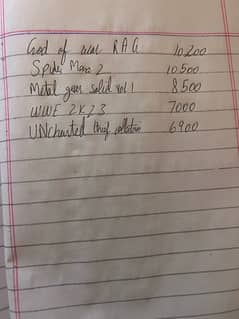 God of war RAG 10200
Spider Man 2 10500
Metal gear solid vol 1 8500
WWE 2K23 7000
UNcharted thief collection 6900